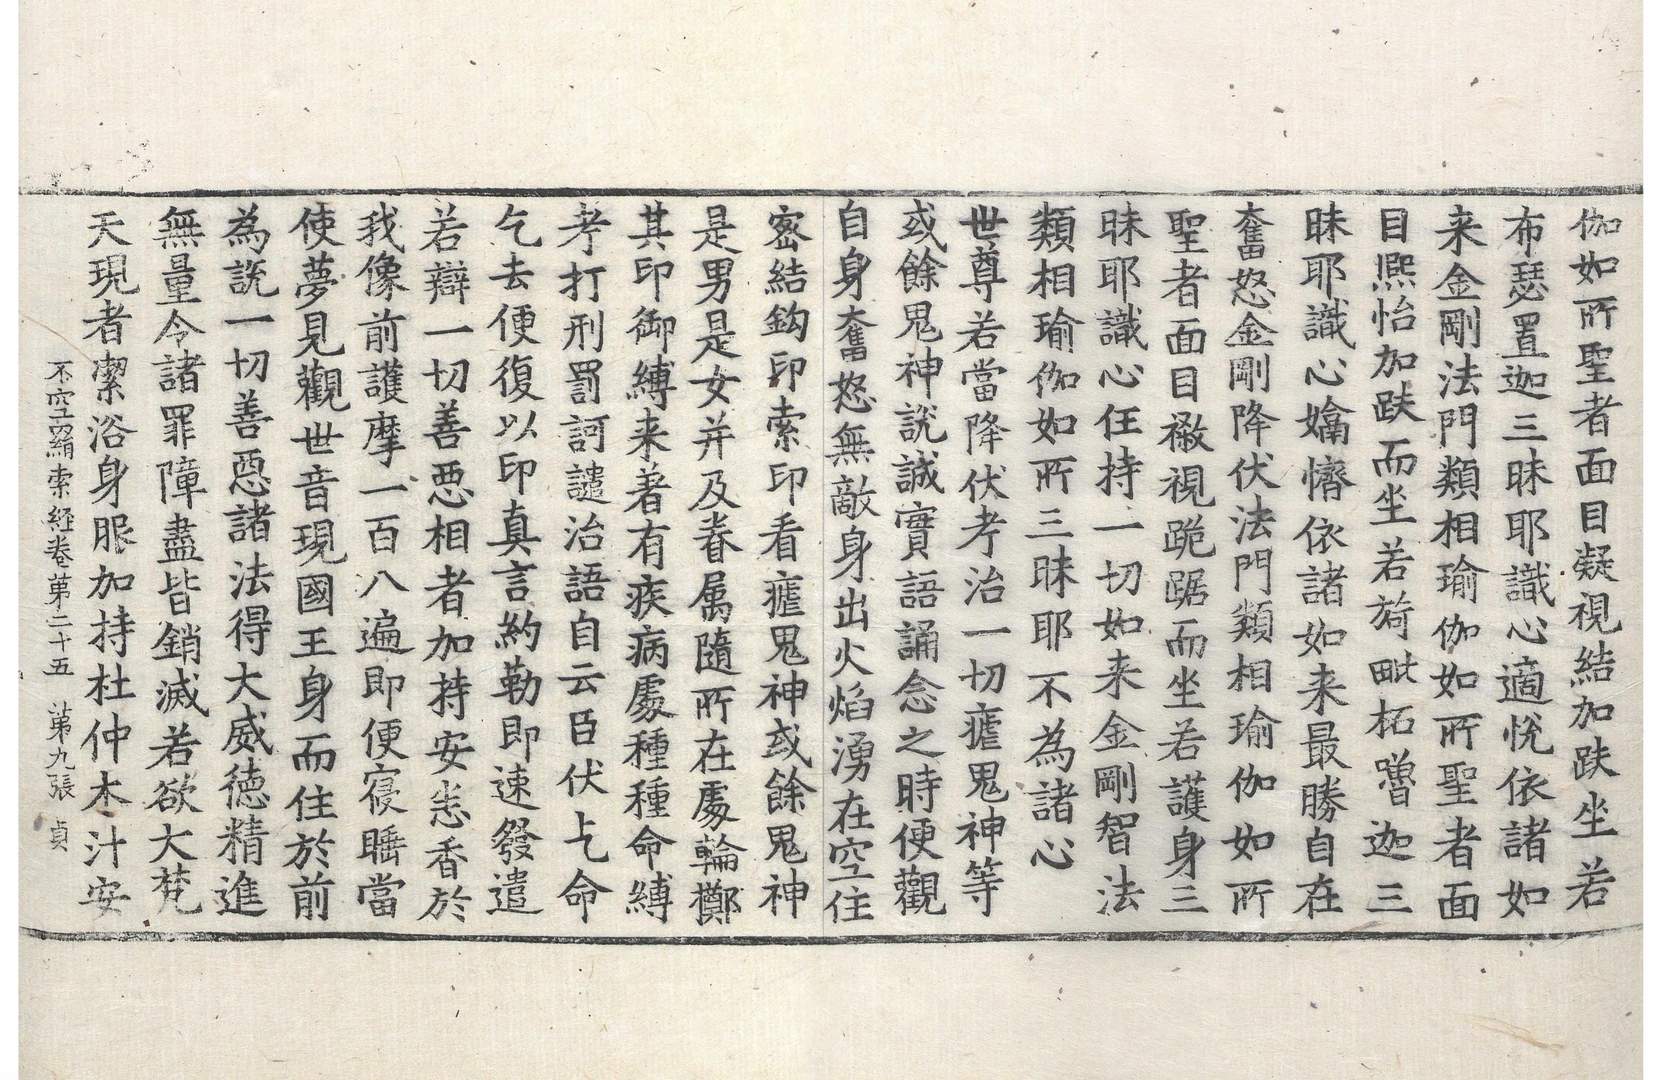 伽如所聖者面目凝視結加趺坐若
布瑟置迦三昧耶識心適悅依諸如
来金剛法門類相瑜伽如所聖者面
目熈怡加趺而坐若旖毗柘嚕迦三
昧耶識心嫷惰依諸如来最勝自在
奮怒金剛降伏法門類相瑜伽如所
聖者面目䫌視跪踞而坐若護身三
昧耶識心任持一切如来金剛智法
類相瑜伽如所三昧耶不為諸心
世尊若當降伏考治一切瘧鬼神等
或餘鬼神說誠實語誦念之時便觀
自身奮怒無敵身出火焰湧在空住
密結鈎印索印看瘧鬼神或餘鬼神
是男是女并及眷属隨所在處輪擲
其印御縛来著有疾病處種種命縛
考打刑罰訶譴治語自云臣伏乞命
乞去便復以印真言約勒即速發遣
若辯一切善惡相者加持安悉香於
我像前護摩一百八遍即便寢睡當
使夢見觀世音現國王身而住於前
為說一切善惡諸法得大威德精進
無量令諸罪障盡皆銷滅若欲大梵
天現者潔浴身服加持杜仲木汁安
不空羂索経卷第二十五　第九張　貞